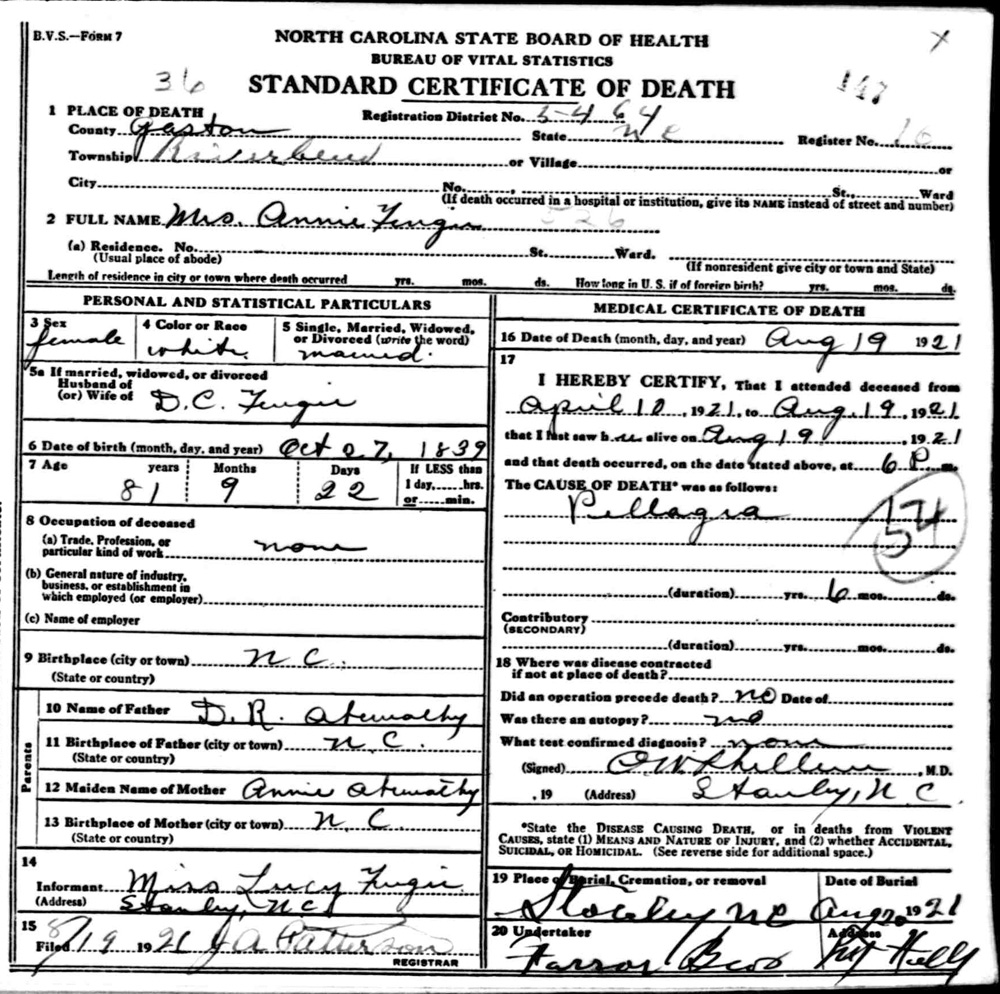 B.V.S.—FORM 7
NORTH CAROLINA STATE BOARD OF HEALTH
BUREAU OF VITAL STATISTICS
STANDARD CERTIFICATE OF DEATH
36
147
1 PLACE OF DEATH
Registration District No. 5-4 64
County Gaston State NC Register No. 16
Township Riverbend or Village or
City No. , St., Ward
(If death occurred in a hospital or institution, give its NAME instead of street and number)
2 FULL NAME Mrs. Annie 526
(a) Residence. No. St. Ward.
(Usual place of abode) (If nonresident give city or town and State)
Length of residence in city or town where death occurred yrs. mos. ds. How long in U. S. if of foreign birth? yrs. mos. ds.
PERSONAL AND STATISTICAL PARTICULARS
3 Sex 4 Color or Race 5 Single, Married, Widowed,
or Divorced (write the word)
female white married.
5a If married, widowed, or divorced
Husband of
(or) Wife of D. C.
6 Date of birth (month, day, and year) Oct 27, 1839
7 Age years Months Days If LESS than
1 day, hrs.
or min.
81 9 22
8 Occupation of deceased
(a) Trade, Profession, or
particular kind of work none
(b) General nature of industry,
business, or establishment in
which employed (or employer)
(c) Name of employer
9 Birthplace (city or town) N C.
(State or country)
Parents
10 Name of Father D. R. Abernathy
11 Birthplace of Father (city or town) N. C.
(State or country)
12 Maiden Name of Mother Annie Abernathy
13 Birthplace of Mother (city or town) N C.
(State or country)
14
Informant Miss Lucy
(Address) Stanley, NC
15
Filed 8/19 1921 J A Patterson
REGISTRAR
MEDICAL CERTIFICATE OF DEATH
16 Date of Death (month, day, and year) Aug 19 1921
17
I HEREBY CERTIFY, That I attended deceased from
April 10, 1921, to Aug. 19, 1921
that I last saw her alive on Aug 19. , 1921
and that death occurred, on the date stated above, at 6 P m.
The CAUSE OF DEATH* was as follows:
Pellagra
54
(duration) yrs. 6 mos. ds.
Contributory
(SECONDARY)
(duration) yrs. mos. ds.
18 Where was disease contracted
if not at place of death?
Did an operation precede death? no Date of
Was there an autopsy? no
What test confirmed diagnosis? none
(Signed) , M.D.
, 19 (Address) Stanley, N. C.
*State the DISEASE CAUSING DEATH, or in deaths from VIOLENT
CAUSES, state (1) MEANS AND NATURE OF INJURY, and (2) whether ACCIDENTAL,
SUICIDAL, OR HOMICIDAL. (See reverse side for additional space.)
19 Place of Burial, Cremation, or removal Date of Burial
Stanley NC Aug 20 1921
20 Undertaker Address
Bros Mt Holly